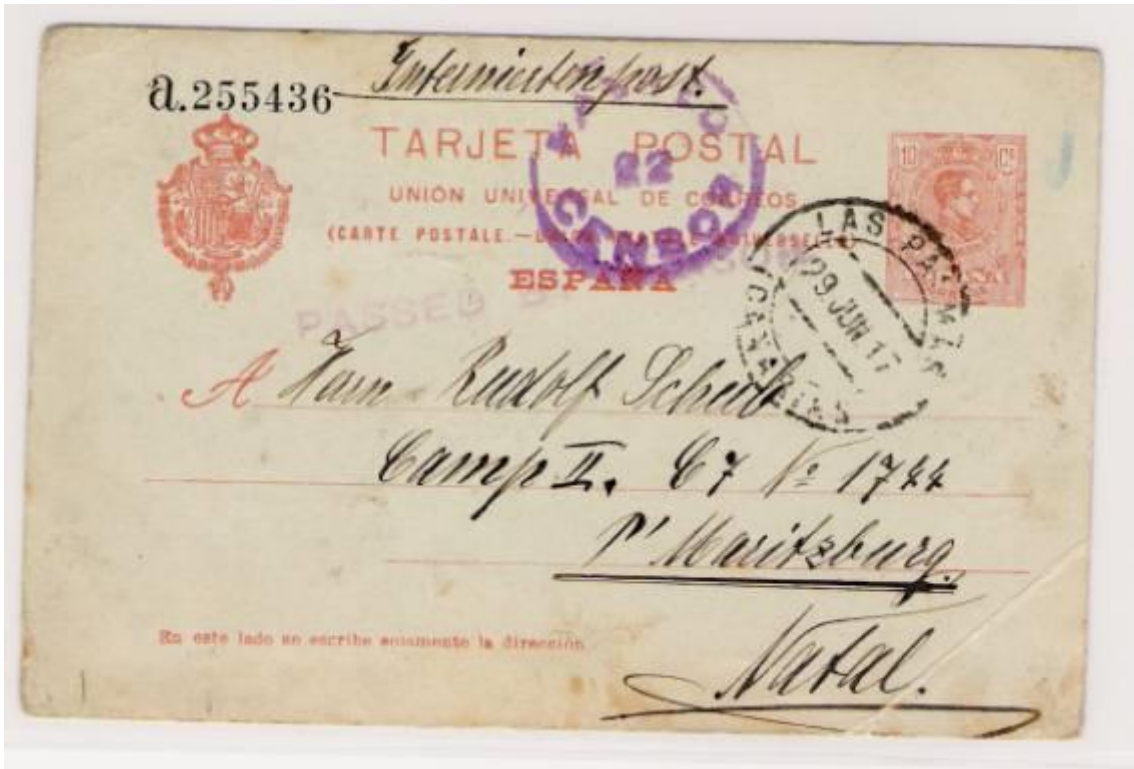 Interniertenpost.
a.255436
TARJETA POSTAL
UNIÓN UNIVERSAL DE CORREOS
(CARTE POSTALE.—
ESPAÑA
10 Cs
22
CENSOR
PASSED BY CENSOR
LAS PALMAS
29 JUN 17
CANARIAS
A Herrn Rudolf
Camp II. C7 No 1744
P'Maritzburg,
Natal.
En este lado se escribe solamente la dirección